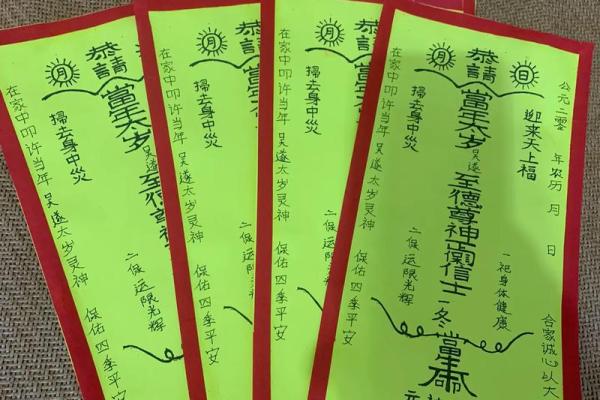 公元二零 年农历 月 日
合家诚心以大
日
迎来天上福
一祀身体健康
恭請
當年太岁吴遂至德尊神正氣信士一冬
月
掃去身中災
二保运限光辉
在家中叩许当年吴遂太岁灵神
月
掃去身中災
二保运限光辉
在家中叩许当年吴遂太岁灵神 保佑四季平安
恭請
當年太岁
月
掃去身中災
二保运限光辉
在家中叩许当年吴遂太岁灵神 保佑四季平安
恭請
當年太岁吴遂至德尊神
月
掃去身中災
二保运限光辉
在家中叩许当年吴遂太岁灵神 保佑四季平安